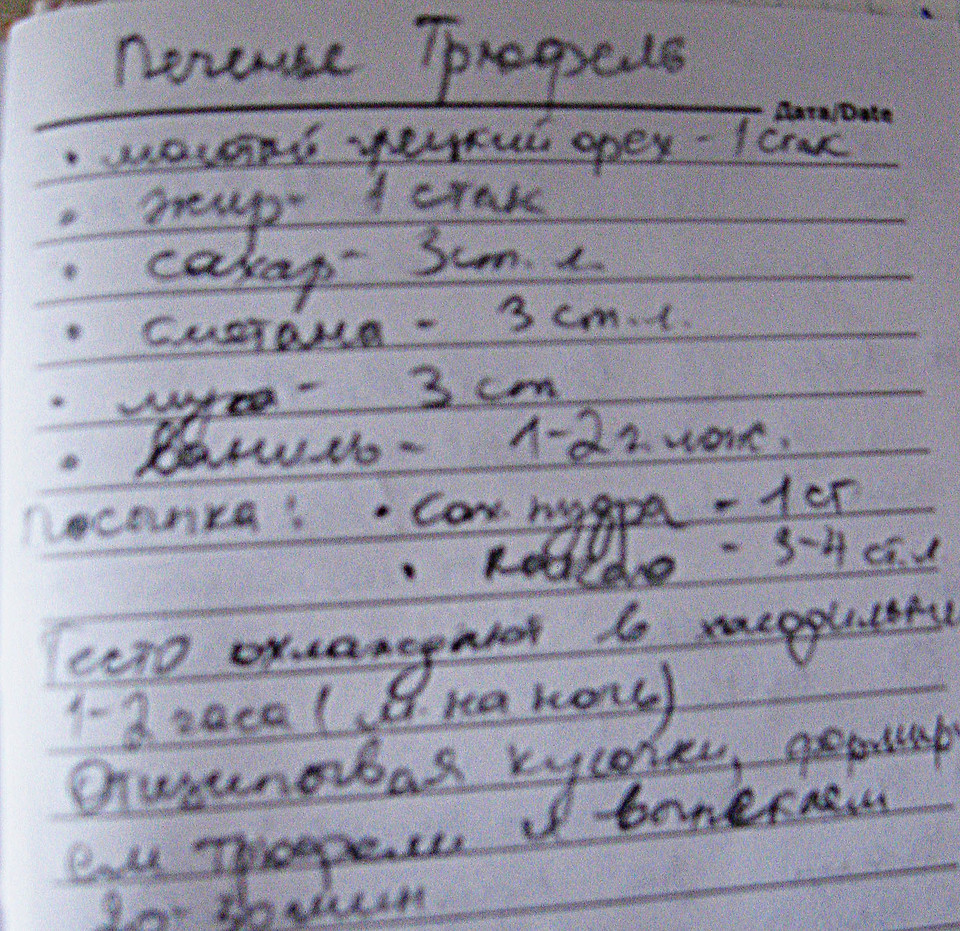 Печенье Трюфель
Дата/Date
• молотый грецкий орех - 1 стак
• жир - 1 стак
• сахар - 3 ст. л.
• сметана - 3 ст. л.
• мука - 3 ст
• Ваниль - 1-2 ч. лож.
Посыпка: • Сах. пудра - 1 ст
• какао - 3-4 ст. л
Тесто охлаждают в холодильни
1-2 часа (м. на ночь)
Отщипывая кусочки, формиру
ем трюфели и выпекаем
20-30 мин